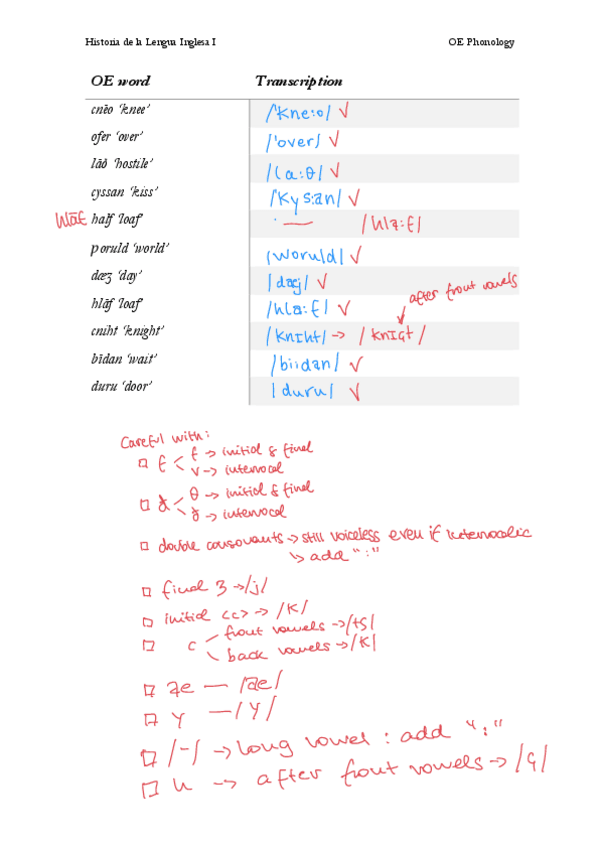 Historia de la Lengua Inglesa I OE Phonology
OE word Transcription
cnēo 'knee' /'kne:o/ √
ofer 'over' /'over/ √
lāð 'hostile' /la:θ/ √
cyssan 'kiss' /'kys:an/ √
hlāf half 'loaf' — /hla:f/
poruld 'world' /woruld/ √
dæȝ 'day' /dæj/ √ after front vowels
hlāf 'loaf' /hla:f/ √
cniht 'knight' /knɪht/ → /knɪçt/
bīdan 'wait' /bi:dan/ √
duru 'door' /duru/ √
Careful with:
f < f → initial & final
v → intervocal
ð < θ → initial & final
ð → intervocal
double consonants → still voiceless even if intervocalic
↳ add ":"
final ȝ → /j/
initial <c> → /k/
c front vowels → /tʃ/
back vowels → /k/
æ — /æ/
y — /y/
/-/ → long vowel : add ":"
h → after front vowels → /ç/